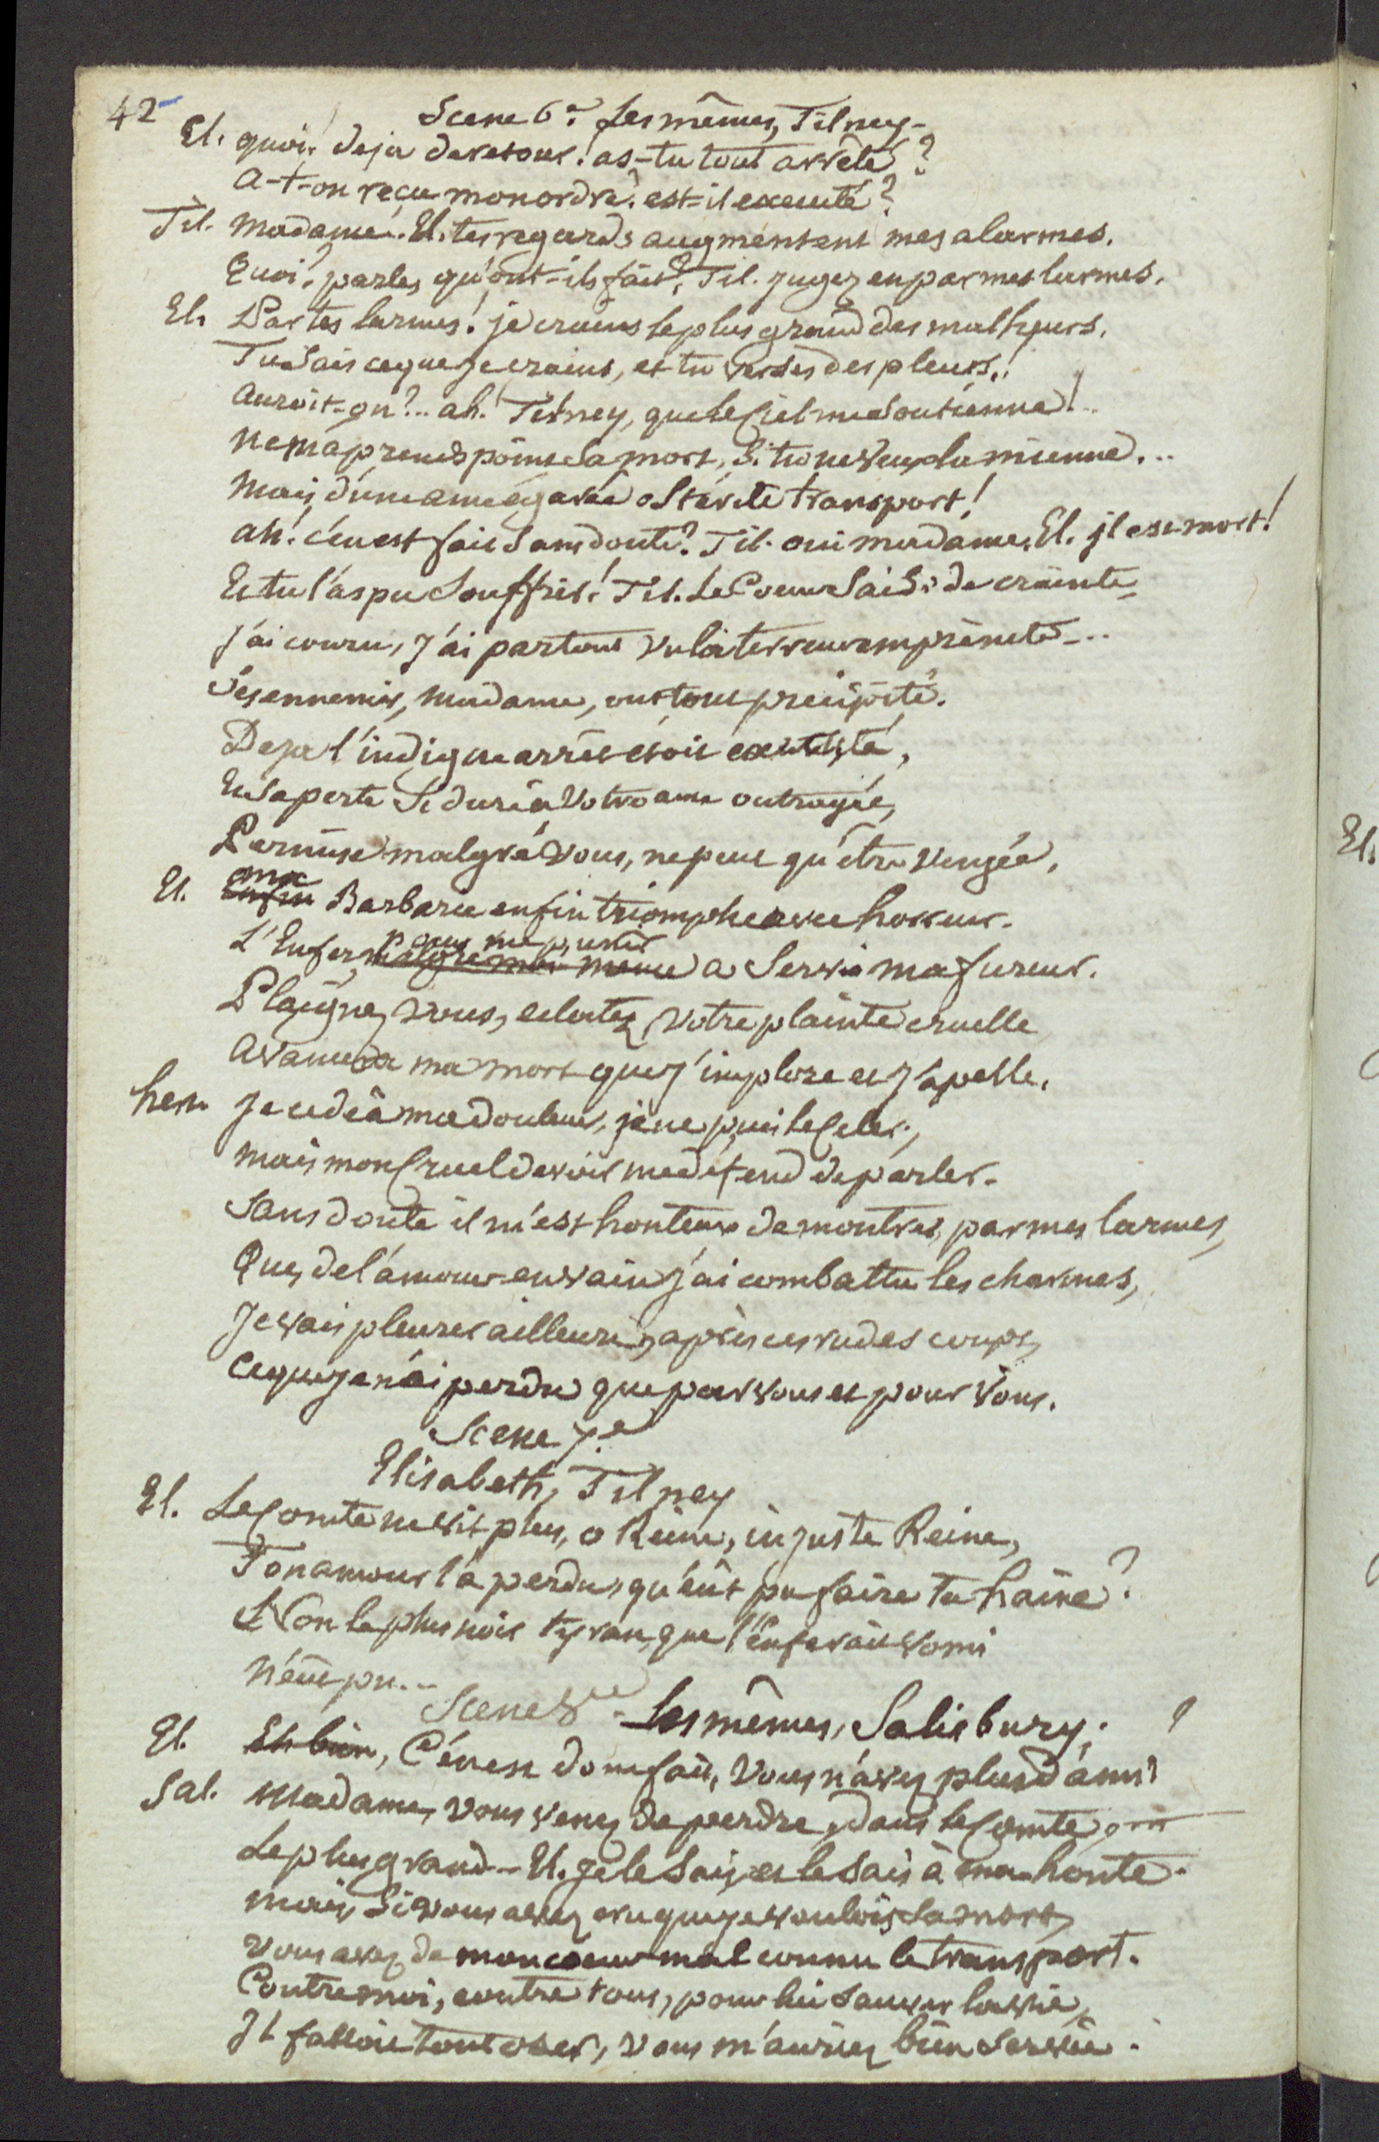 42
Scene 6e. Les mêmes, Tilney-
El. quoi! deja de retour! as-tu tout arrêté?
A-t-on reçu mon ordre? est-il executé?
Til. Madame. El. tes regards augmentent mes alarmes.
Quoi! parles, qu'ont-ils fait? Til. Jugez en par mes larmes.
El. Par tes larmes! je crains le plus grand des malheurs.
Tu sais ce que je crains, et tu verses des pleurs!
Auroit-on?.. ah! Tilney, que le Ciel me soutienne!..
Ne m'aprends point sa mort, Si tu ne veux la mienne...
Mais, d'une ame égarée o stérile transport!
ah! c'en est fait sans doute? Til. oui madame. El. jl est mort!
Et tu l'as pu souffrir! Til. Le Coeur saisi de crainte,
J'ai couru, j'ai partout vu la terreur empreinte...
Ses ennemis, madame, ont tout precipité.
Deja l'indigne arrêt etoit executé,
Et sa perte si dure à Votre ame outragée,
Permise malgré vous, ne peut qu'être vengée.
El. Enfin ma Barbarie enfin triomphe avec horreur.
L'Enfer, malgré moi même pour me punir a servi ma fureur.
Plaignez vous, eclatez, votre plainte cruelle
Avancera ma mort que j'implore et j'apelle.
hen. Je cede à ma douleur, je ne puis le celer,
mais mon Cruel devoir me défend de parler.
Sans doute il m'est honteux de montrer, par mes larmes,
Que, de l'amour en vain j'ai combattu les charmes,
Je vais pleurer ailleurs, après ces rudes coups,
Ce que je n'ai perdu que par vous et pour vous.
Scene 7.e
Elisabeth, Tilney
El. Le Comte ne vit plus, o Reine, injuste Reine,
Ton amour l'a perdu, qu'eût pu faire ta haine?
Non le plus noir tyran, que l'enfer ait vomi
N'eût pu...
Scene 8e. Les mêmes, Salisbury.
El. Eh bien, C'en est donc fait, Vous n'avez plus d'ami?
Sal. Madame, vous venez de perdre, dans le Comte,
Le plus grand - El. Je le sais, et le sais à ma honte.
mais, Si vous avez cru que je voulois sa mort,
Vous avez de mon coeur mal connu le transport.
Contre moi, contre tous, pour lui sauver la vie,
Jl falloit tout oser, Vous m'auriez bien servie.
El.